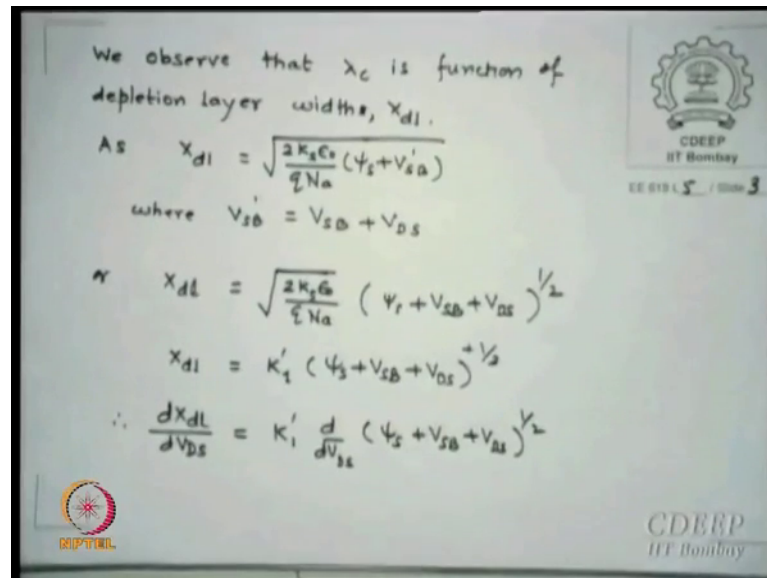 We observe that λc is function of
depletion layer widths, Xdl.
As Xdl = √(2KsЄ0/qNa (ψs + V'SB))
where V'SB = VSB + VDS
or Xdl = √(2KsЄ0/qNa) (ψs + VSB + VDS)^1/2
Xdl = K'1 (ψs + VSB + VDS)^+1/2
∴ dXdL/dVDS = K'1 d/dVDS (ψs + VSB + VDS)^1/2
CDEEP
IIT Bombay
EE 619 L 5 / Slide 3
NPTEL
CDEEP
IIT Bombay